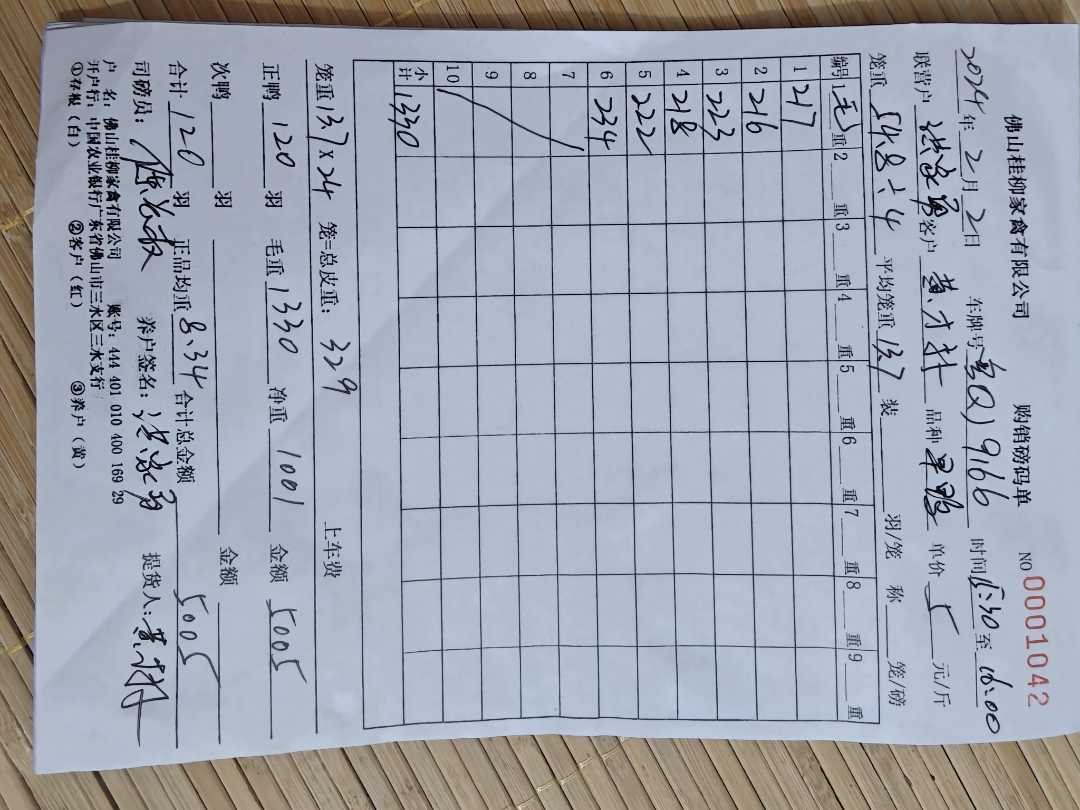 佛山桂柳家禽有限公司 购销磅码单 NO 0001042
2024年2月2日 车牌号 Q19166 时间15:30至16:00
联营户 洪家勇 客户 黄才林 品种 单价5元/斤
笼重 54.8÷4 平均笼重13.7 装 羽/笼 称 笼/磅
编号 1毛重 2 重 3 重 4 重 5 重 6 重 7 重 8 重 9 重
1 217
2 216
3 223
4 218
5 222
6 234
7
8
9
10
小计 1330
笼重13.7×24 笼=总皮重: 329 上车费
正鸭 120 羽 毛重1330 净重 1001 金额 5005
次鸭 羽 金额
合计 120 羽 正品均重8.34 合计总金额 5005
司磅员: 养户签名: 洪家勇 提货人: 黄才林
户 名: 佛山桂柳家禽有限公司 账号: 444 401 010 400 169 29
开户行: 中国农业银行广东省佛山市三水区三水支行
①存根(白) ②客户(红) ③养户(黄)